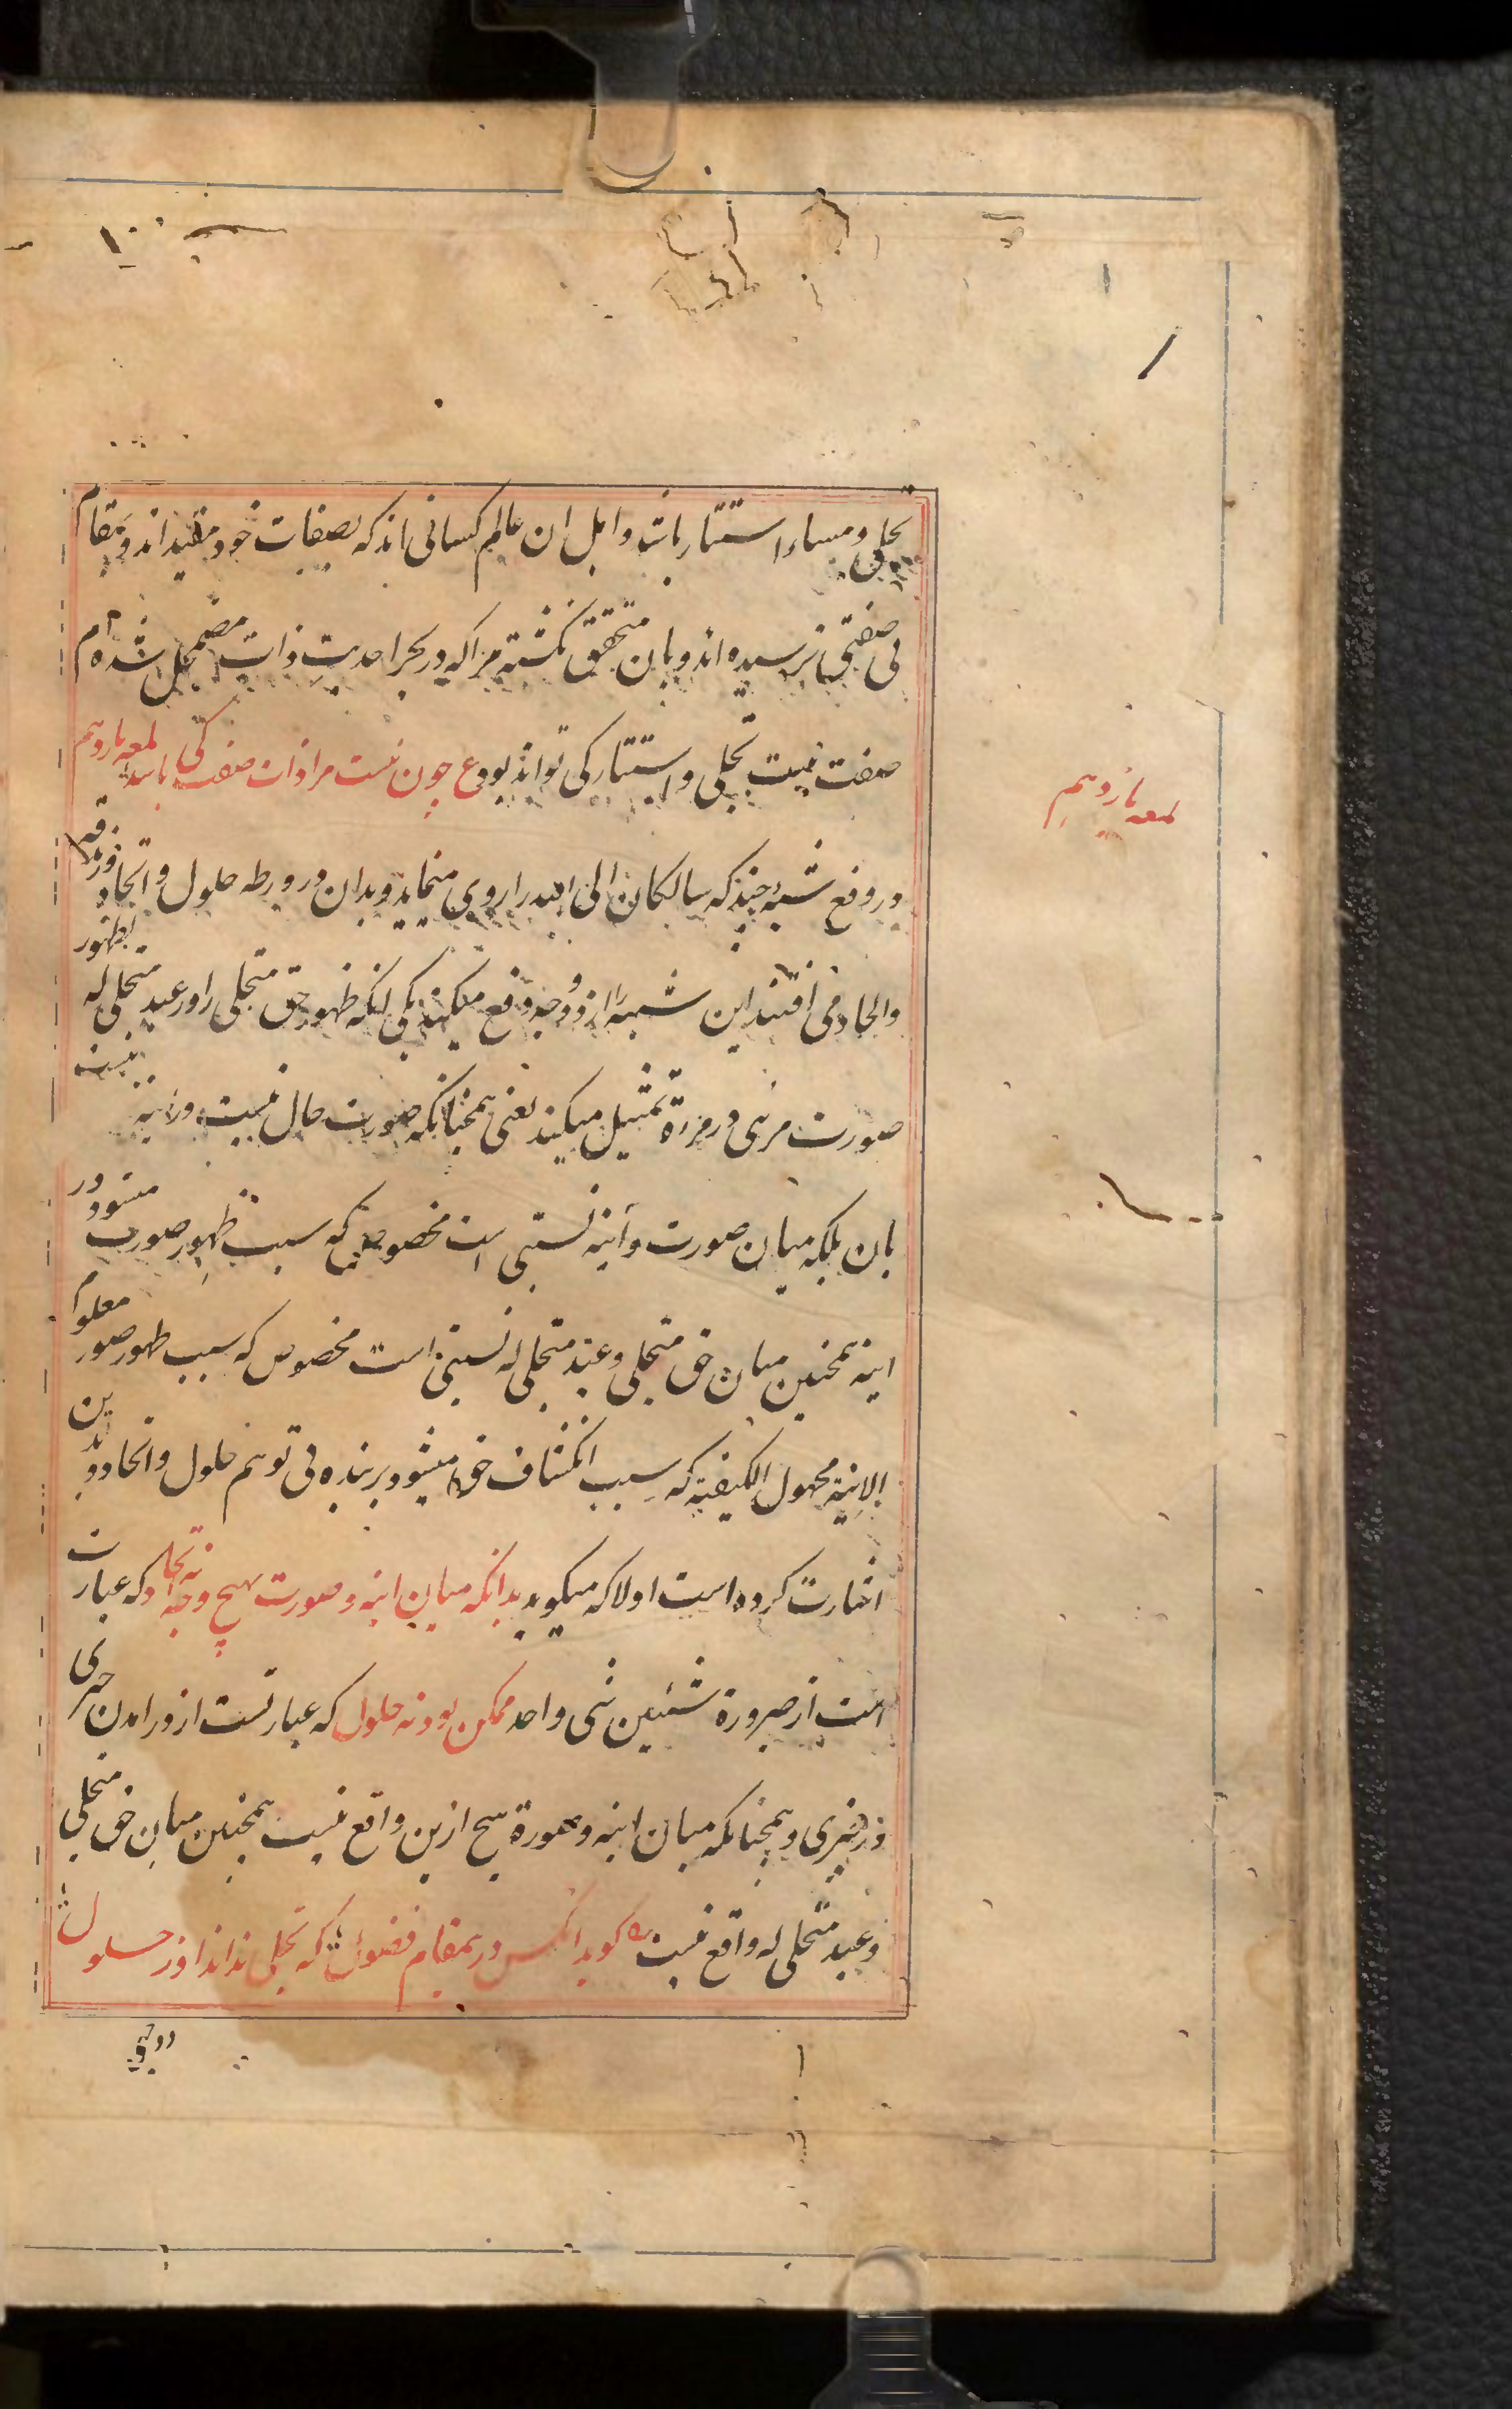 تجلی و مساء استتار باشد و اهل ان عالم کسانی اند که بصفات خود مقید اند و بمقام
بی صفتی نرسیده اند و بان متحقق نکشته مرا که در بحر احدیت ذات مضمحل شده ام
صفت نیست تجلی و استتار کی تواند بود ع چون نیست مرا ذات صفت کی باشد لمعه یازدهم
لمعه یازدهم
در رفع شبهٔ چند که سالکان الی الله را روی مینماید و بدان در ورطه حلول و اتحاد و زندقه
و الحاد می افتند این شبه را از دو وجه دفع میکند یکی انکه ظهور حق متجلی را در عبد متجلی له بظهور
صورت مرئی در مراة تمثیل میکند یعنی همچنانکه صورت حال نیست در اینه نیست
بان بلکه میان صورت و اینه نسبتی است مخصوص که سبب ظهور صورت میشود در
اینه همچنین میان حق متجلی و عبد متجلی له نسبتی است مخصوص که سبب ظهور صور معلوم
الانیة مجهول الکیفیة که سبب انکشاف حق میشود بر بنده بی توهم حلول و اتحاد و بدین
اشارت کرده است اولا که میکوید بدانکه میان اینه و صورت بهیچ وجه نه اتحاد که عبارت
است از صیرورة شیئین شی واحد ممکن بود نه حلول که عبارتست از در امدن چیزی
در چیزی و همچنانکه میان اینه و صورة هیچ ازین واقع نیست همچنین میان حق متجلی
و عبد متجلی له واقع نیست کوید انکس در ین مقام فضول که تجلی نداند او ز حلول